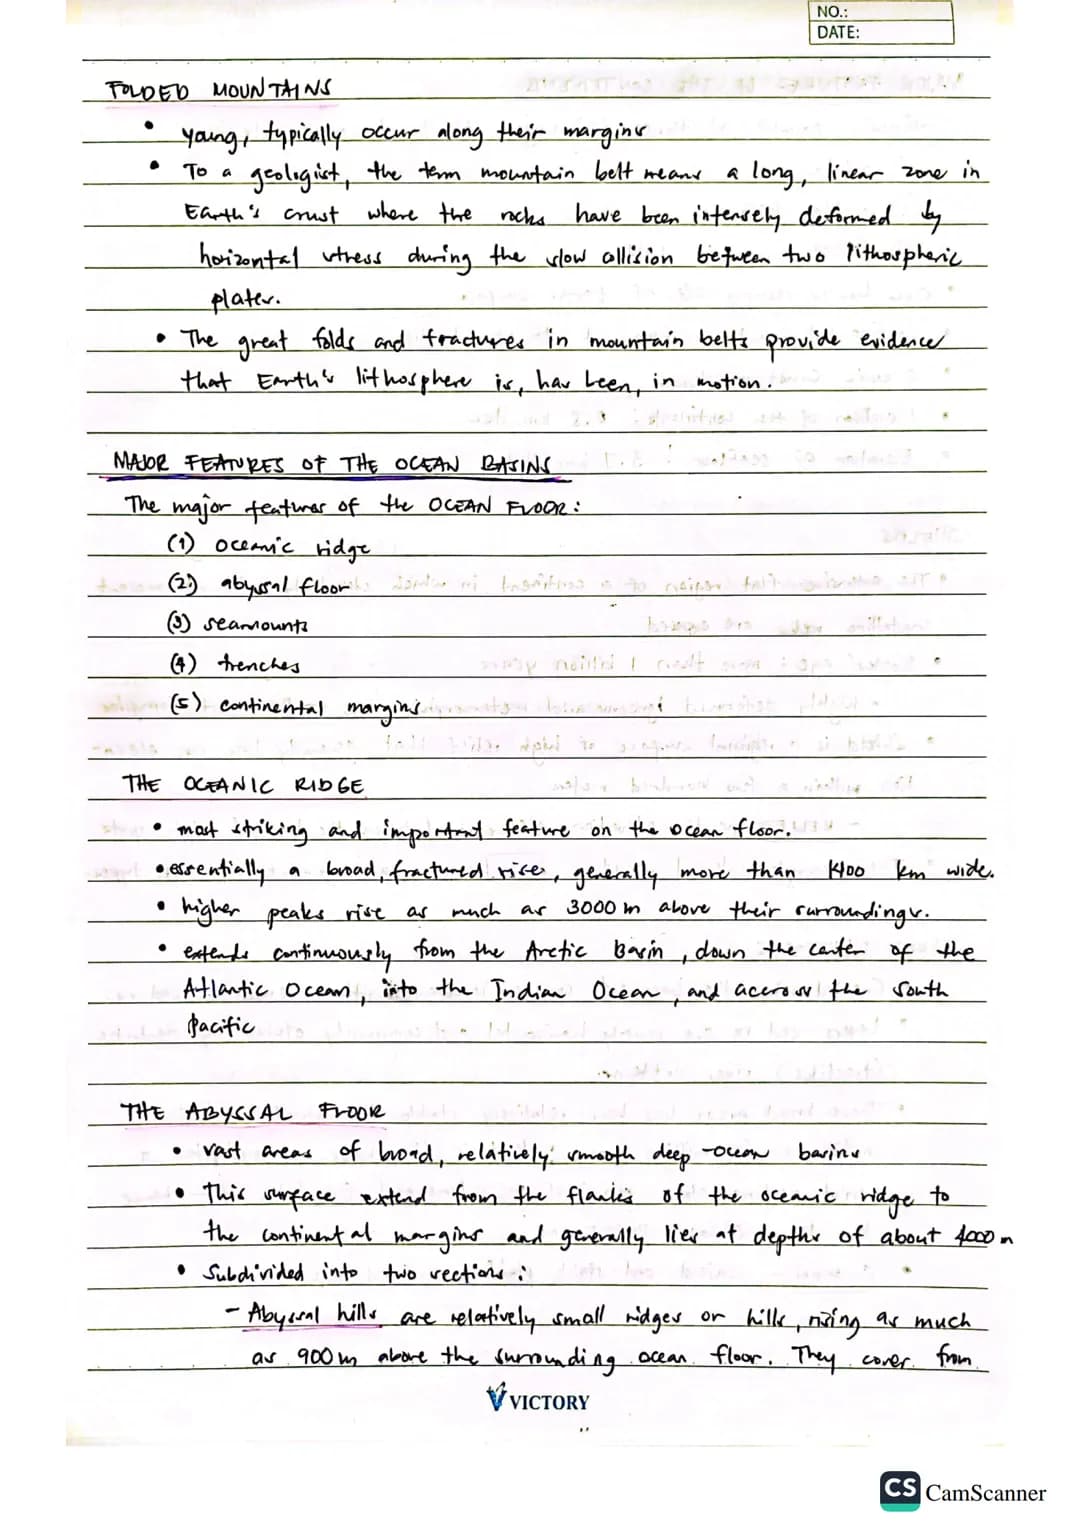 NO.:
DATE:
FOLDED MOUNTAINS
• young, typically occur along their margins
• To a geologist, the term mountain belt means a long, linear zone in
Earth's crust where the rocks have been intensely deformed by
horizontal stress during the slow collision between two lithospheric
plates.
• The great folds and fractures in mountain belts provide evidence
that Earth's lithosphere is, has been, in motion.
MAJOR FEATURES OF THE OCEAN BASINS
The major features of the OCEAN FLOOR:
(1) oceanic ridge
(2) abyssal floor
(3) seamounts
(4) trenches
(5) continental margins
THE OCEANIC RIDGE
• most striking and important feature on the ocean floor.
• essentially a broad, fractured rise, generally more than 1400 km wide.
• higher peaks rise as much as 3000 m above their surroundings.
• extends continuously from the Arctic Basin, down the center of the
Atlantic Ocean, into the Indian Ocean, and across the South
Pacific
THE ABYSSAL FLOOR
• vast areas of broad, relatively smooth deep-ocean basins
• This surface extend from the flanks of the oceanic ridge to
the continental margins and generally lies at depths of about 4000 m
• Subdivided into two sections:
- Abyssal hills are relatively small ridges or hills, rising as much
as 900 m above the surrounding ocean floor. They cover from
VICTORY
CS CamScanner